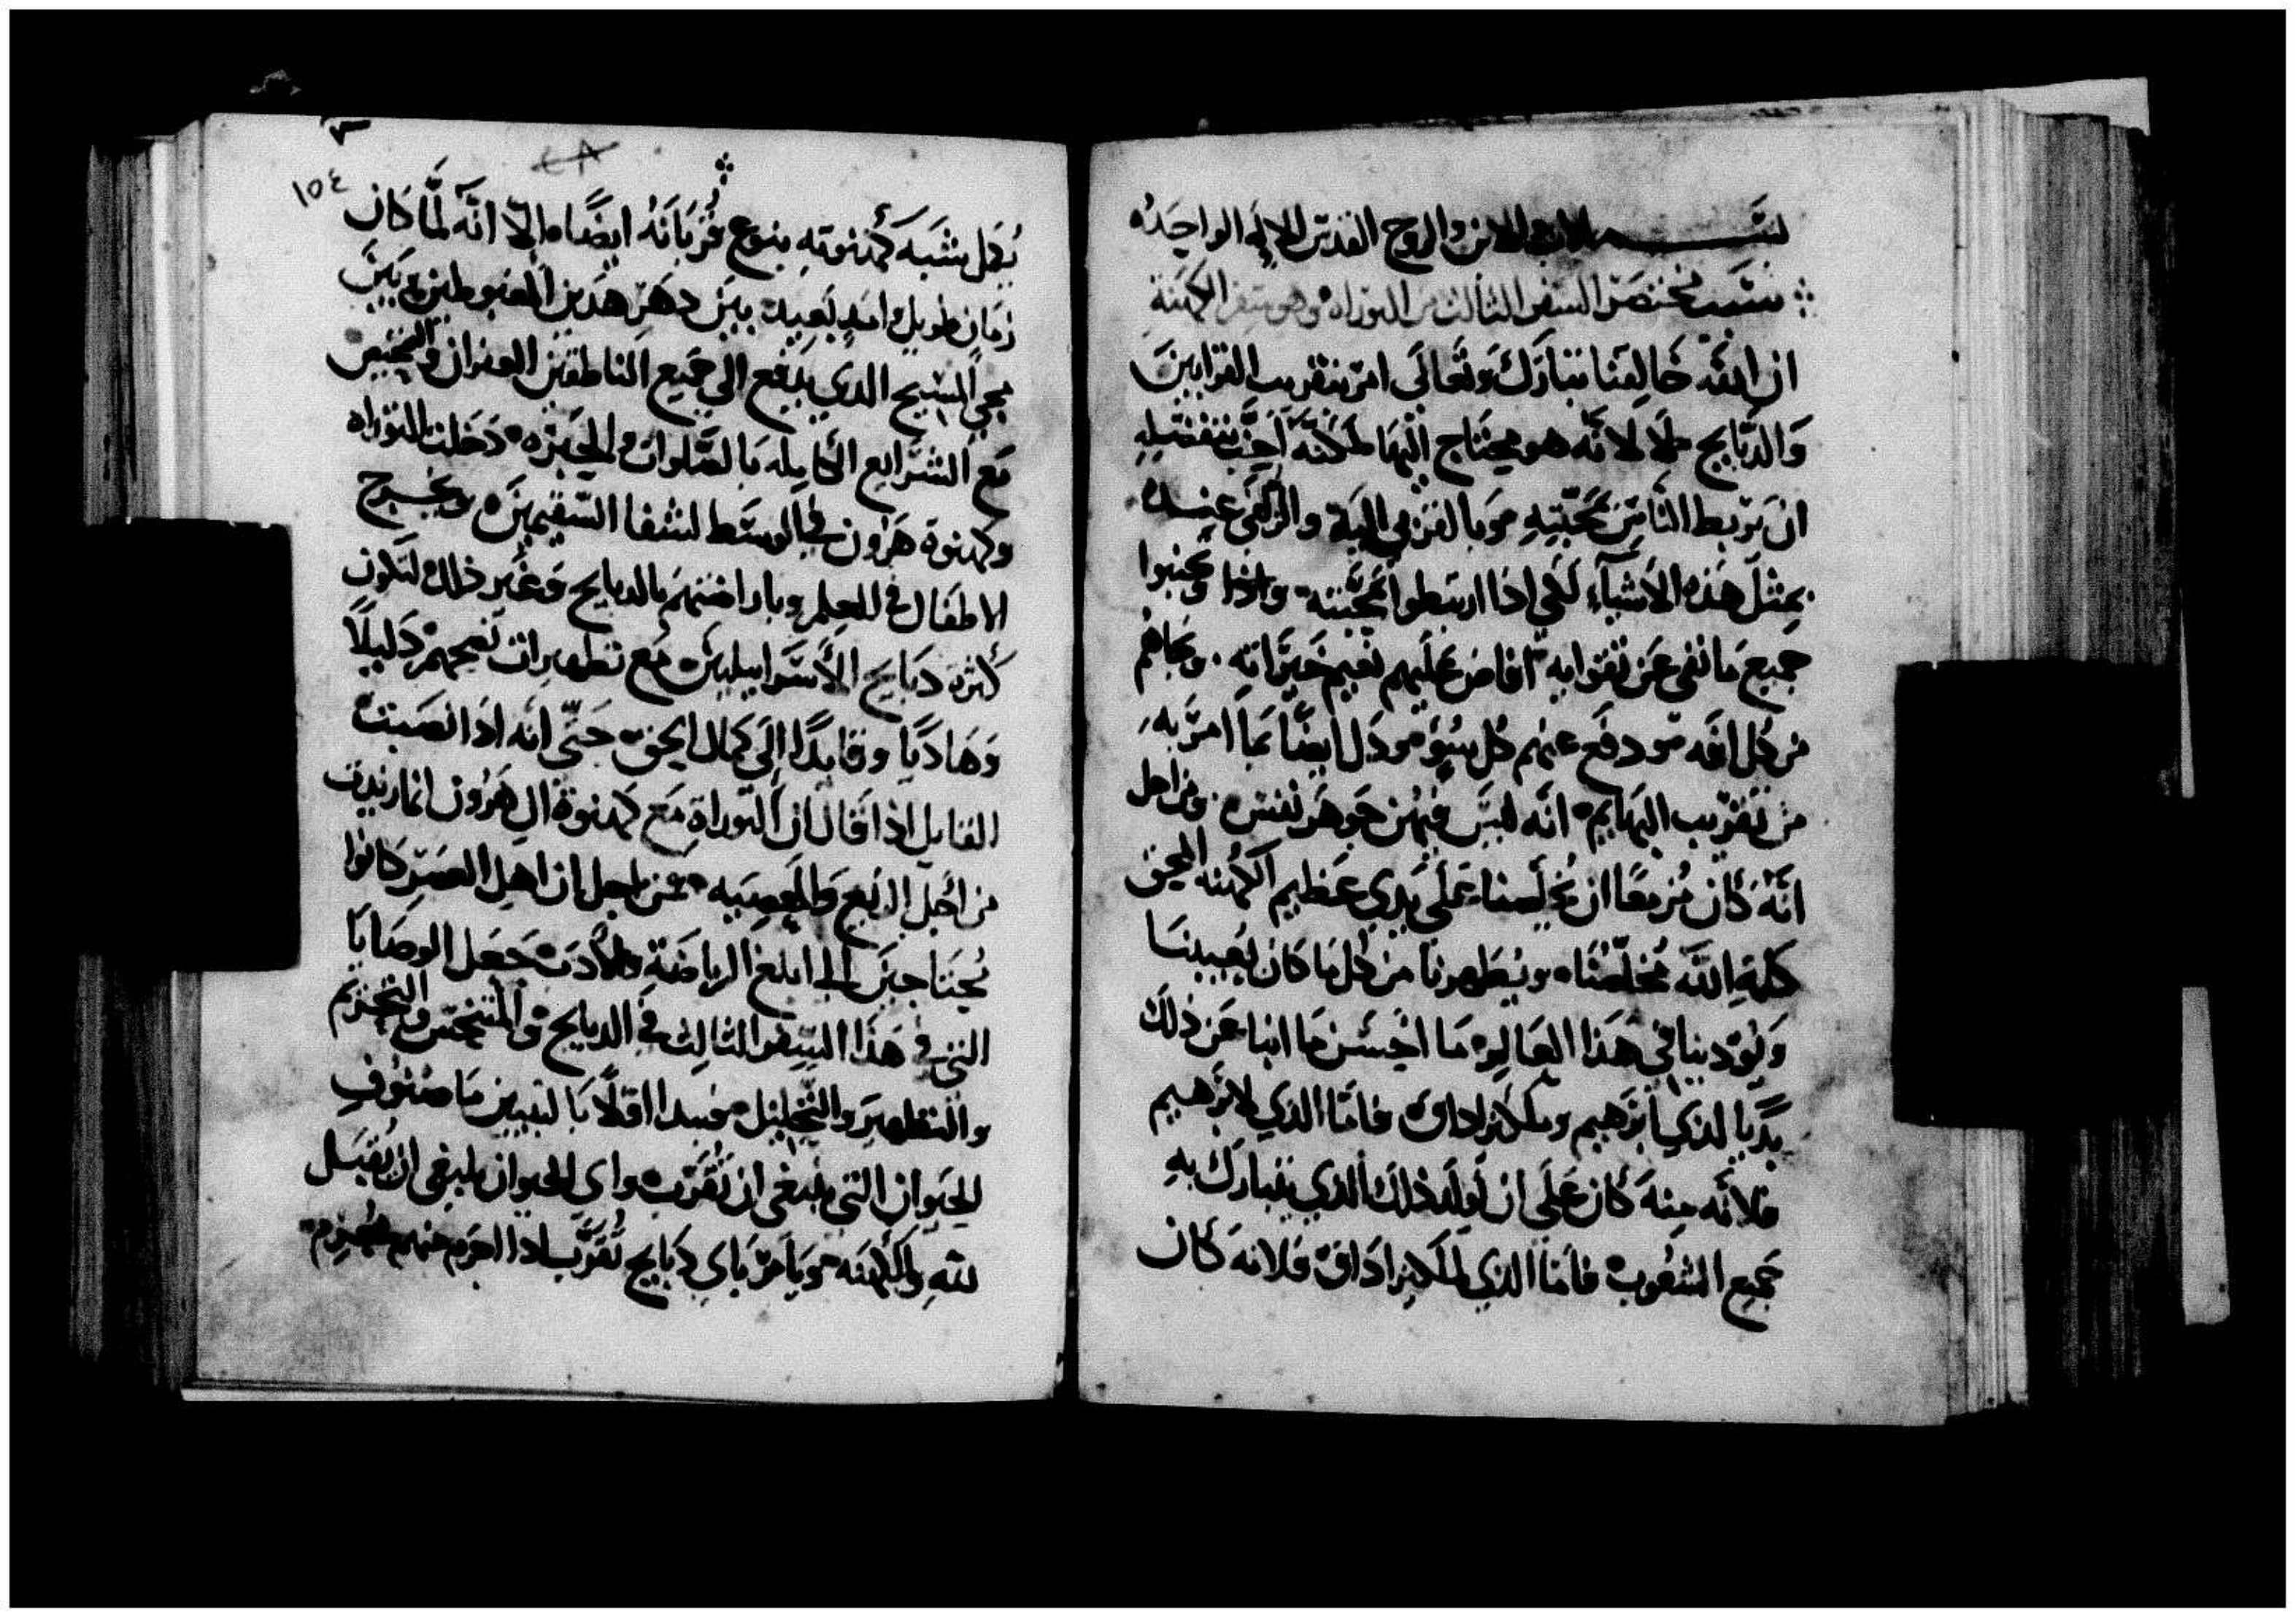 بسم الاب والابن والروح القدس الاله الواحد
نثبت مختصر السفر الثالث من التوراه وهو سفر الكهنة
ان الله خالقنا تبارك وتعالى امر بتقريب القرابين
والدبايح لا لانه هو محتاج اليها لكنه احب بتفضله
ان يربط الناس بمحبته وبالقربى اليه والزلفى عنده
بمثل هذه الاشياء لكي اذا ارتبطوا بمحبته واذا وتجنبوا
جميع ما نفى عن تقوايه افاض عليهم نعيم خيراته ونجاهم
من كل افه ودفع عنهم كل سوء ودل ايضا بما امر به
من تقريب البهايم انه ليس فيهن جوهر نفس ومن اجل
انه كان مزمعا ان يخلصنا على يدي عظيم الكهنه المحق
كلمة الله مخلصنا ويطهرنا من كل ما كان يعيبنا
ويودينا في هذا العالم ما احسن ما انبا عن ذلك
بديا لذي ابرهيم وملكيزاداق فاما الذي لابرهيم
فلانه منه كان على ان يولد ذلك الذي يتبارك به
جميع الشعوب فاما الذي لملكيزاداق فلانه كان
١٥٤
يكل شبه كهنوته بنوع قربانه ايضا الا انه لما كان
زمان طويل وامد بعيد بين دهر هدين المغبوطين وبين
مجي المسيح الدي يدفع الى جميع الناطقين الغفران والتخيير
مع الشرايع الكامله بالصلوات والخبزه دخلت التوراه
وكهنوة هرون في الوسط لشفا السقيمين وتخرج
الاطفال في العلم وبارا ضتهم بالدبايح وغير ذلك لتكون
كثرة دبايح الاسراييليين مع تطهيرات نصحهم دليلا
وهاديا وقايدا الى كمال الحق حتى انه اذا نصبت
القايل اذا قال ان التوراة مع كهنوة ال هرون انما زيدت
من اجل الزيغ والمعصيه من اجل ان اهل العسر كانوا
يحتاجين الى ابلغ الرياضة والادب جعل الوصايا
التي في هذا السفر الثالث في الدبايح والتنجيس والتحريم
والتطهير والتحليل مبتدا اولا بالتبيين ما صنوف
الحيوان التي ينبغي ان تقرب واي الحيوان ينبغي ان يقبل
لله والكهنه ويامر باي دبايح تقرب اذا اجرم منهم مجرم